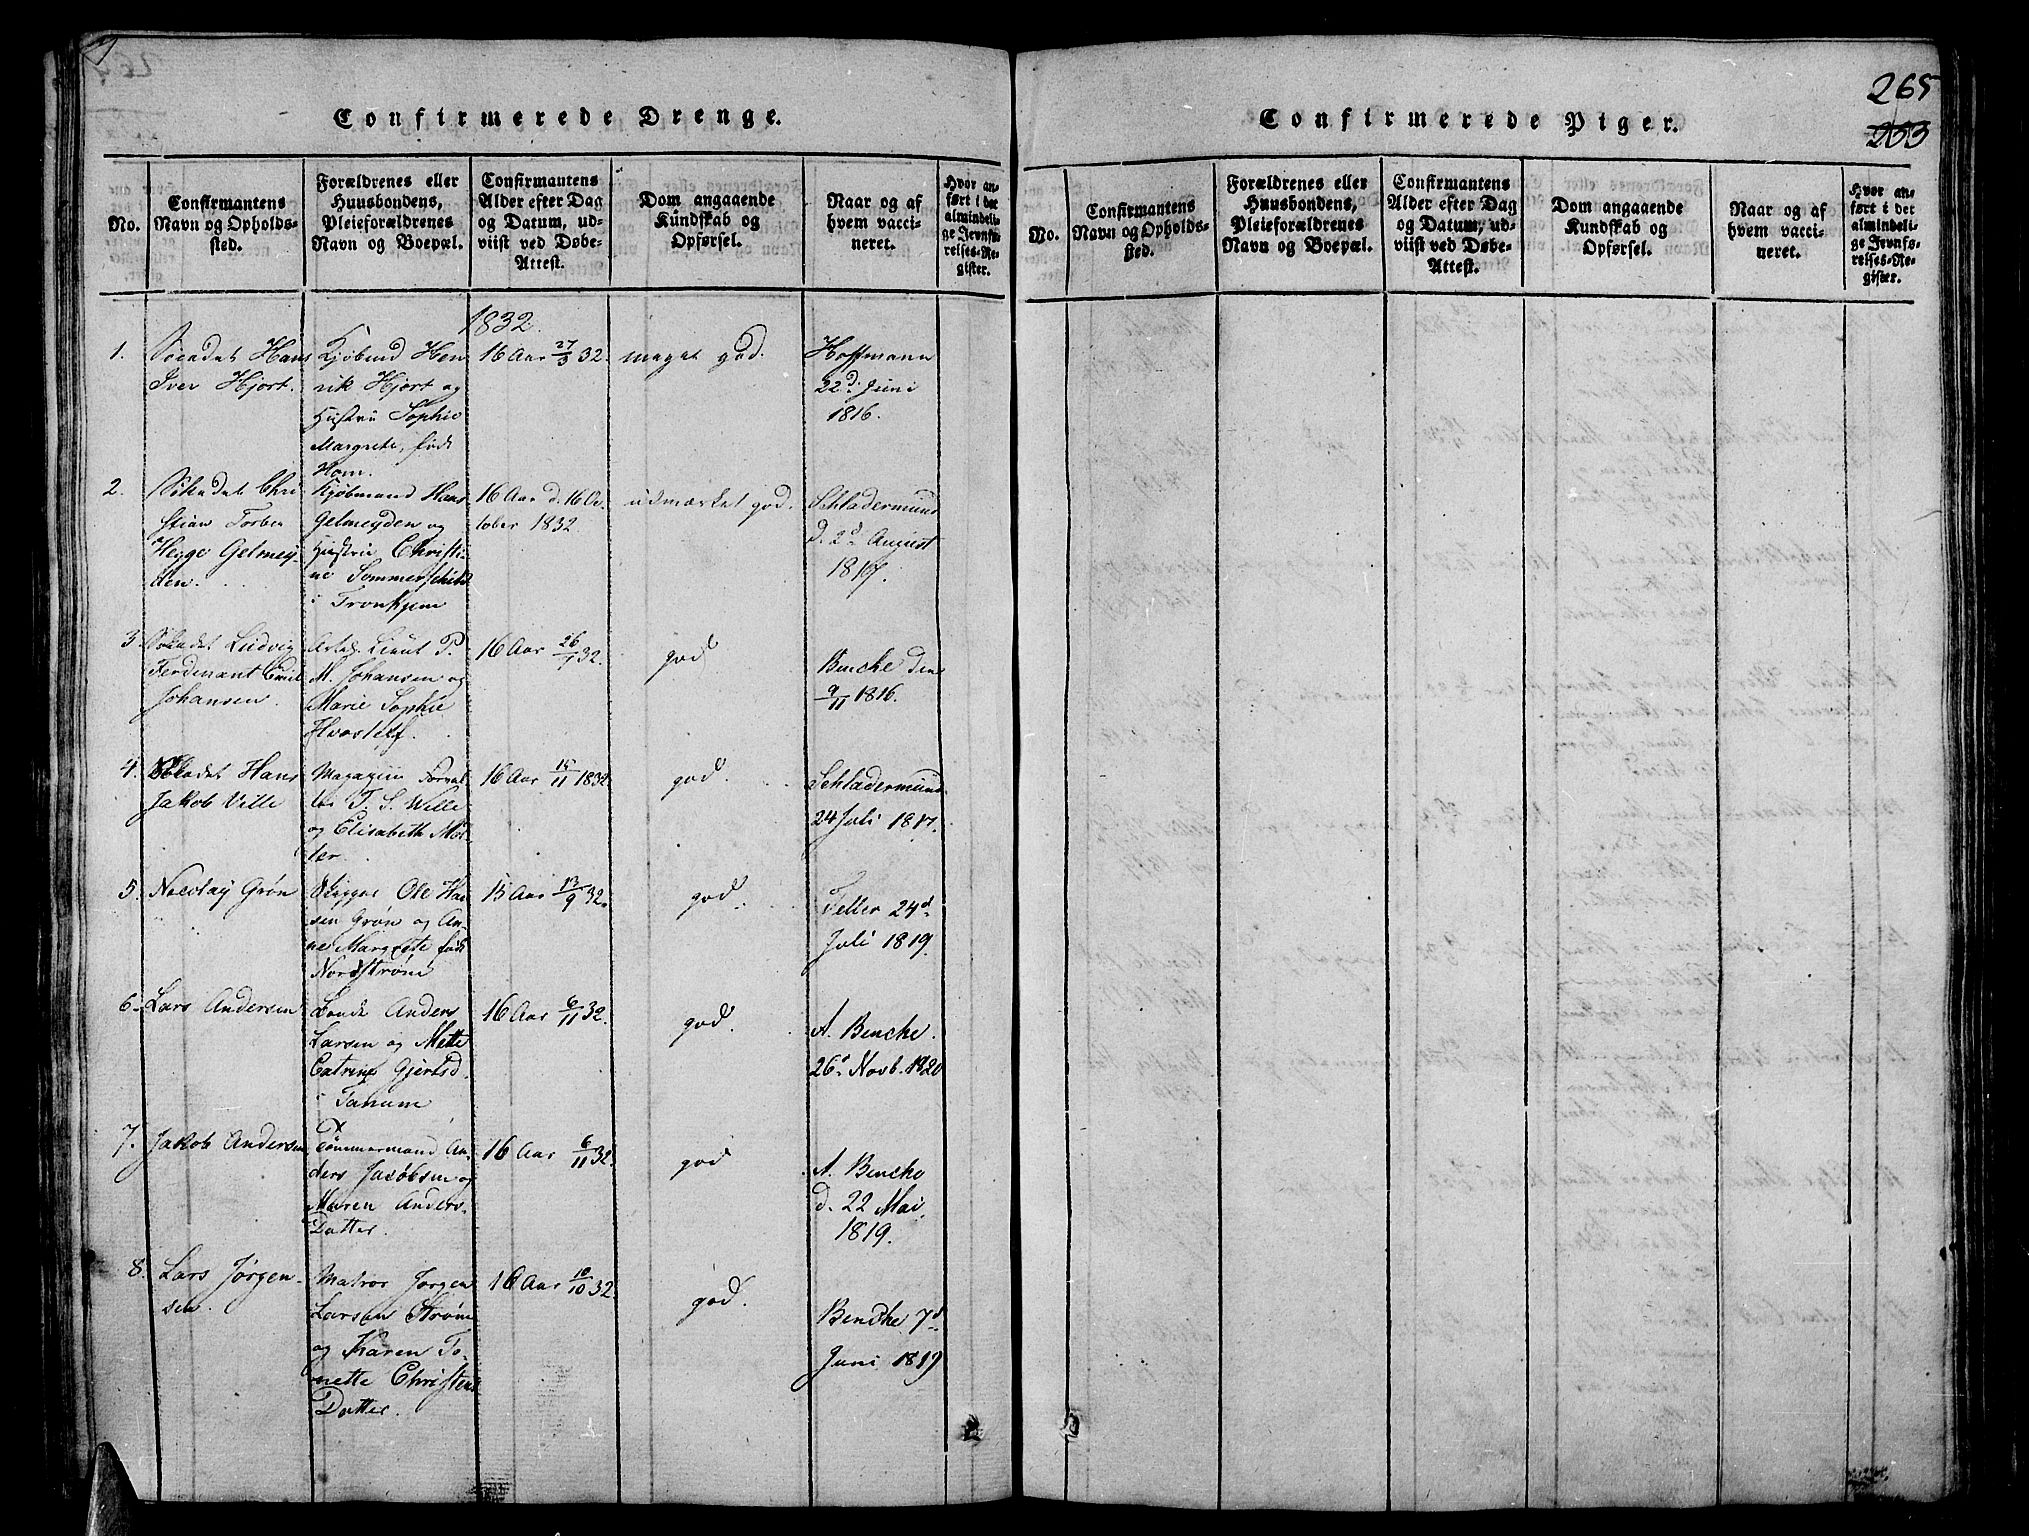 Confirmerede Drenge.
No.
Confirmantens
Navn og Opholds-
sted.
Forældrenes eller
Huusbondens,
Pleieforældrenes
Navn og Boepæl.
Confirmantens
Alder efter Dag
og Datum, ud-
viist ved Døbe-
Attest.
Dom angaaende
Kundskab og
Opførsel.
Naar og af
hvem vacci-
neret.
Hvor an-
ført i det
almindeli-
ge Jevnfø-
relses-Re-
gister.
1832.
1.
Søcadet Hans
Iver Hjort.
Kjøbmd Hen-
rik Hjort og
Hustru Sophie
Margrete, født
Horn.
16 Aar 27/3 32.
meget god.
Hoffmann
22d Juni
1816.
2.
Søkadet Chri
stian Torber
Hegge Gelmey-
den.
Kjøbmand Hans
Gelmeyden og
Hustrue Christi-
ne Sommerschild
i Tronhjem
16 Aar d. 16 Oc-
tober 1832
udmærket god.
Schladermund
d. 2d August
1817.
3.
Søkadet Ludvig
Ferdinant Emil
Johansen.
Lieut P.
M. Johansen og
Marie Sophie
16 Aar 26/7 32.
god
Bencke den
9/11 1816.
4.
Søkadet Hans
Jakob Ville
Magazin Forval-
ter T. S. Wille
og Elisabeth Møl-
ler.
16 Aar 15/11 1832
god.
Schladermund
24 Juli 1817.
5.
Nicolay Grøn
Skipper Ole Han-
sen Grøn og An-
ne Margrete født
Nordstrøm
15 Aar 13/9 32.
god.
Feller 24d
Juli 1819.
6.
Lars Andersen
Bonde Anders
Larsen og Mette
Catrine Gjertsd.
i Tanum
16 Aar 6/11 32.
god.
A. Bencke.
26d Novb. 1820
7.
Jakob Andersen
Tømmermand An-
ders Jacobsen og
Maren Anders-
Datter.
16 Aar 6/11 32.
god
A. Bencke
d. 22 Mai
1819.
8.
Lars Jørgen-
sen.
Matros Jørgen
Larsen Strøm
og Karen To-
nette Christens
Datter.
16 Aar 10/10 32.
god.
Bencke 7d
Juni 1819
265
253
Confirmerede Piger.
No.
Confirmantens
Navn og Opholds-
sted.
Forældrenes eller
Huusbondens,
Pleieforældrenes
Navn og Boepæl.
Confirmantens
Alder efter Dag
og Datum, ud-
viist ved Døbe-
Attest.
Dom angaaende
Kundskab og
Opførsel.
Naar og af
hvem vacci-
neret.
Hvor an-
ført i det
almindeli-
ge Jevnfø-
relses-Re-
gister.